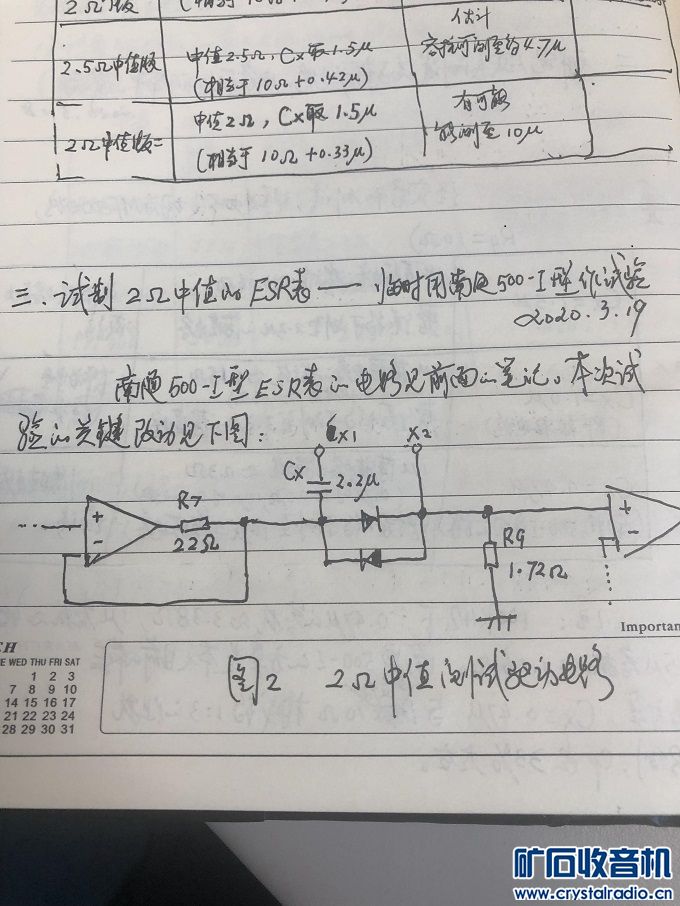 2Ω中值版
2.5Ω中值版
中值2.5Ω, Cx取1.5μ
(相当于10Ω+0.42μ)
估计
容抗可测至约4.7μ
2Ω中值版=
中值2Ω, Cx取1.5μ
(相当于10Ω+0.33μ)
有可能
能测至10μ
三. 试制2Ω中值的ESR表——临时用南通500-I型作试验
2020.3.19
南通500-I型ESR表的电路见前面的笔记。本次试
验的关键改动见下图:
X1
X2
Cx
2.2μ
R7
22Ω
+
-
R9
1.72Ω
+
Importan
CH
E WED THU FRI SAT
1 2 3
7 8 9 10
14 15 16 17
21 22 23 24
28 29 30 31
图2 2Ω中值测试驱动电路
矿石收音机
www.crystalradio.cn